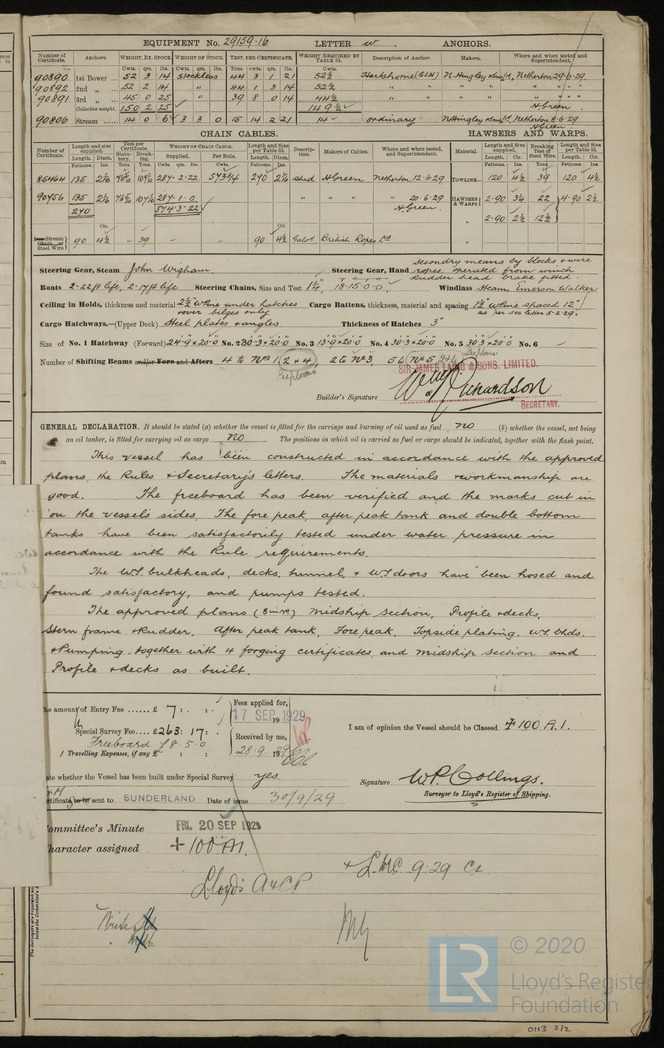 EQUIPMENT No. 29159.16 LETTER w. ANCHORS.
Number of Certificate. Anchors. WEIGHT, EX. STOCK. WEIGHT OF STOCK. TEST, PER CERTIFICATE. WEIGHT REQUIRED BY TABLE 53. Description of Anchor. Makers. Where and when tested and Superintendent.
Cwts. qrs. lbs. Cwts. qrs. lbs. Tons. cwts. qrs. lbs. Cwts.
90890 1st Bower 52 3 14 Stockless 44 3 1 21 52½ N. Hingley & Sons Ld, Netherton 29.6.29
90892 2nd „ 52 2 14 „ 44 1 3 14 52½ „ „ „ „
90891 3rd „ 45 0 25 „ 39 8 0 14 44½ „ „ „ „
Collective weight. 150 2 25 149½ H. Green
90806 Stream 14 0 6 3 3 0 15 14 2 21 14 ordinary N. Hingley & Sons Ld, Netherton 8-6-29
H. Green
CHAIN CABLES. HAWSERS AND WARPS.
Number of Certificate. Length and size supplied. Test per Certificate. WEIGHT OF CHAIN CABLE. Length and size per Table 53. Description. Makers. Where and when tested, and Superintendent. Material. Length and Size supplied. Breaking Test of Steel Wire. Length and Size per Table 53.
Length. Diam. Statutory. Breaking. Supplied. Per Rule. Length. Diam. Length. Cir. Length. Cir.
86464 135 284.2.22 573¼ 240 stud H Green Netherton 12.6.29 TOWLINE 120 4½ 39 120 4½
90456 135 284.1.0 „ „ „ 20.6.29 HAWSERS & WARPS 2.90 3¼ 22 4.90 2½
270 574.3.22 H. Green. 2.90 2½ 12½
Steel Wire 90 4½ - 39 90 4½ Galvd British Ropes Ld
Steering Gear, Steam John Wigham Steering Gear, Hand Secondary means by blocks & wire
ropes operated from winch
Rudder head brake fitted.
Boats 2-22ft life, 2-17ft life Steering Chains, Size and Test 1¼ 18.15.0.0 Windlass Steam, Emerson Walker
Ceiling in Holds, thickness and material 2½" W Pine under hatches Cargo Battens, thickness, material and spacing 1½" W Pine spaced 12"
& over bilges only as per sec letter 5.2.29.
Cargo Hatchways.—(Upper Deck) Steel plates & angles Thickness of Hatches 3"
Size of No. 1 Hatchway (Forward) 24-9 x 20-0 No. 2 30-3 x 20-0 No. 3 13-9 x 20-0 No. 4 30-3 x 20-0 No. 5 30-3 x 20-0 No. 6
Number of Shifting Beams and/or Fore and Afters 4 to No 1, (2 & 4, 2 to No 3, 5 to No 5
See plans
SIR JAMES LAING & SONS. LIMITED.
Builder's Signature Richardson
SECRETARY.
GENERAL DECLARATION. It should be stated (a) whether the vessel is fitted for the carriage and burning of oil used as fuel no (b) whether the vessel, not being
an oil tanker, is fitted for carrying oil as cargo no The positions in which oil is carried as fuel or cargo should be indicated, together with the flash point.
This vessel has been constructed in accordance with the approved
plans, the Rules & Secretary's letters. The materials & workmanship are
good. The freeboard has been verified and the marks cut in
on the vessel's sides. The fore peak, after peak tank and double bottom
tanks have been satisfactorily tested under water pressure in
accordance with the Rule requirements.
The W.T. bulkheads, decks, tunnel, & W.T. doors have been hosed and
found satisfactory, and pumps tested.
The approved plans midship section, Profile & decks,
Stern frame & Rudder, After peak tank, Fore peak, Topside plating, W.T. bhds.
& Pumping together with 4 forging certificates and midship section and
Profile & decks as built.
The amount of Entry Fee ...... £ 7 : . :
Special Survey Fee .... £263 : 17 :
Freeboard £8.5.0
Travelling Expenses, if any £
Fees applied for,
17 SEP 1929
Received by me,
28.9.1929
I am of opinion the Vessel should be Classed + 100 A.1.
State whether the Vessel has been built under Special Survey yes
Signature W.P. Collings.
Surveyor to Lloyd's Register of Shipping.
Certificate to be sent to SUNDERLAND Date of issue 30/9/29
Committee's Minute FRI. 20 SEP 1929
Character assigned + 100 A1.
+ L.M.C. 9.29 C.L.
Lloyd's A & C.P
© 2020
LR
Lloyd's Register
Foundation
0113 2/2